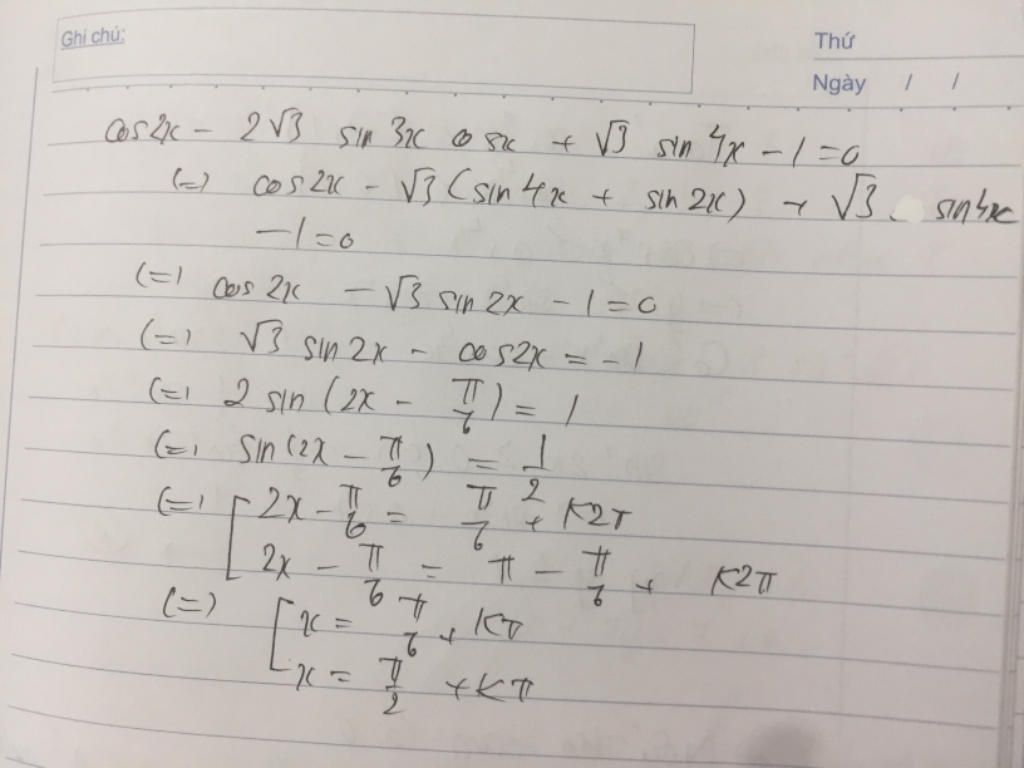 Ghi chú:
Thứ
Ngày / /
cos2x - 2√3 sin 3x cosx + √3 sin 4x - 1 = 0
(=) cos2x - √3 (sin4x + sin 2x) + √3 sin4x
- 1 = 0
(=) cos 2x - √3 sin 2x - 1 = 0
(=) √3 sin 2x - cos2x = - 1
(=) 2 sin (2x - π/6) = 1
(=) sin (2x - π/6) = 1/2
(=) [ 2x - π/6 = π/6 + K2π
2x - π/6 = π - π/6 + K2π
(=) [ x = π/6 + Kπ
x = π/2 + Kπ